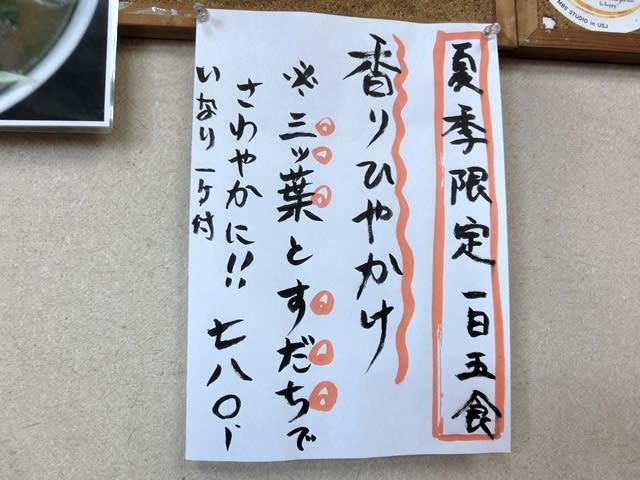 夏季限定 一日五食
香りひやかけ
※三ッ葉とすだちで
さわやかに!! 七八〇
いなり一ヶ付
MBS STUDIO in USJ